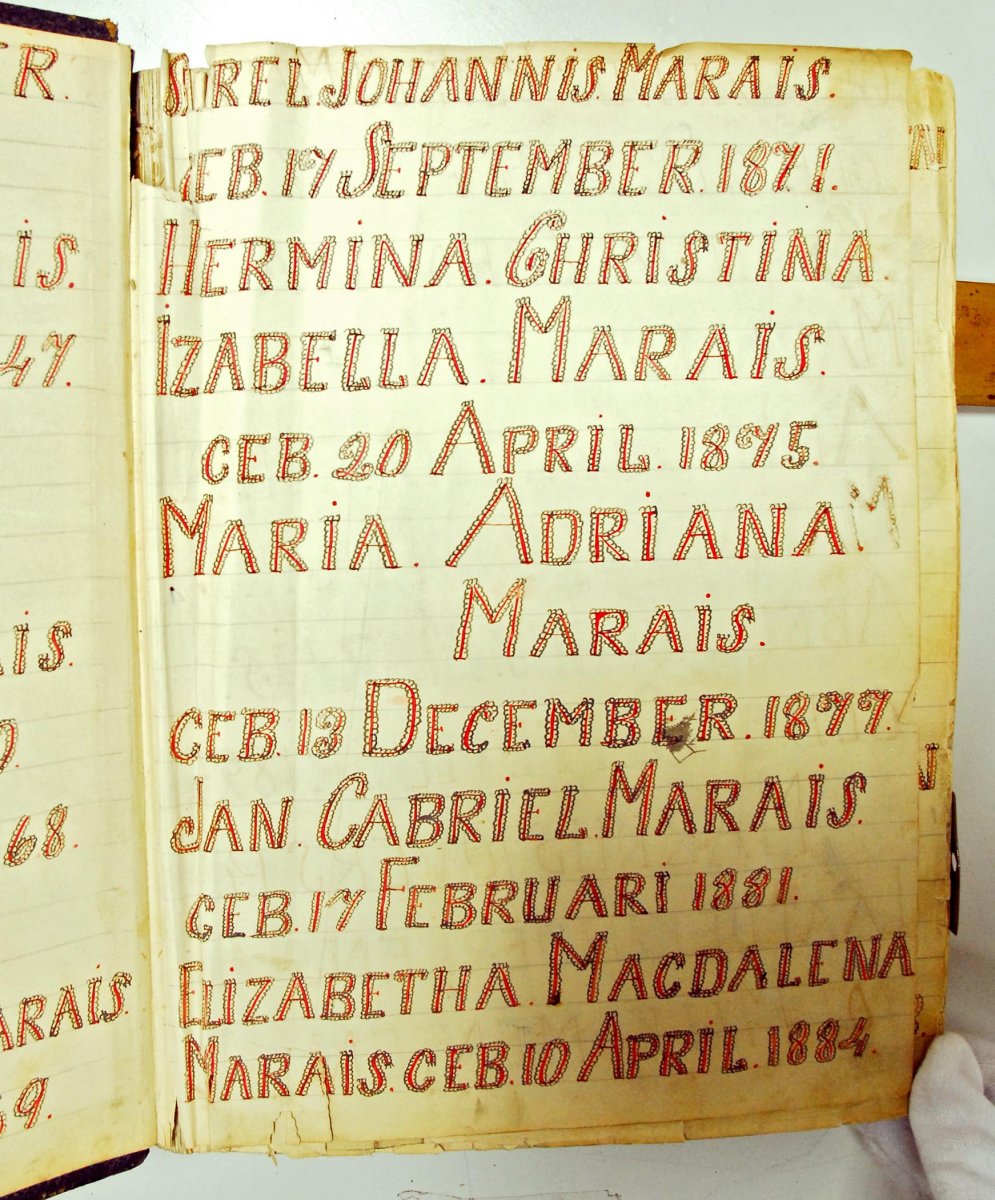 S REL JOHANNIS. MARAIS.
GEB. 17 SEPTEMBER. 1871.
HERMINA. CHRISTINA.
IZABELLA. MARAIS.
GEB. 20 APRIL. 1875.
MARIA. ADRIANA M
MARAIS.
GEB. 13 DECEMBER. 1877.
JAN. GABRIEL. MARAIS.
GEB. 17 FEBRUARI 1881.
ELIZABETHA. MAGDALENA
MARAIS. GEB. 10 APRIL. 1884.